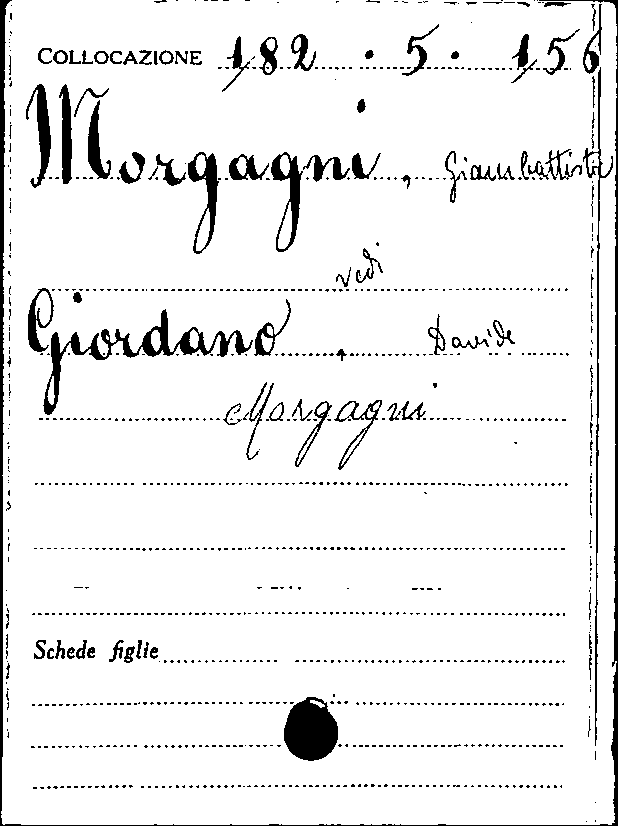 COLLOCAZIONE 182 . 5 . 156
Morgagni, Giambattista
vedi
Giordano, Davide
Morgagni
Schede figlie